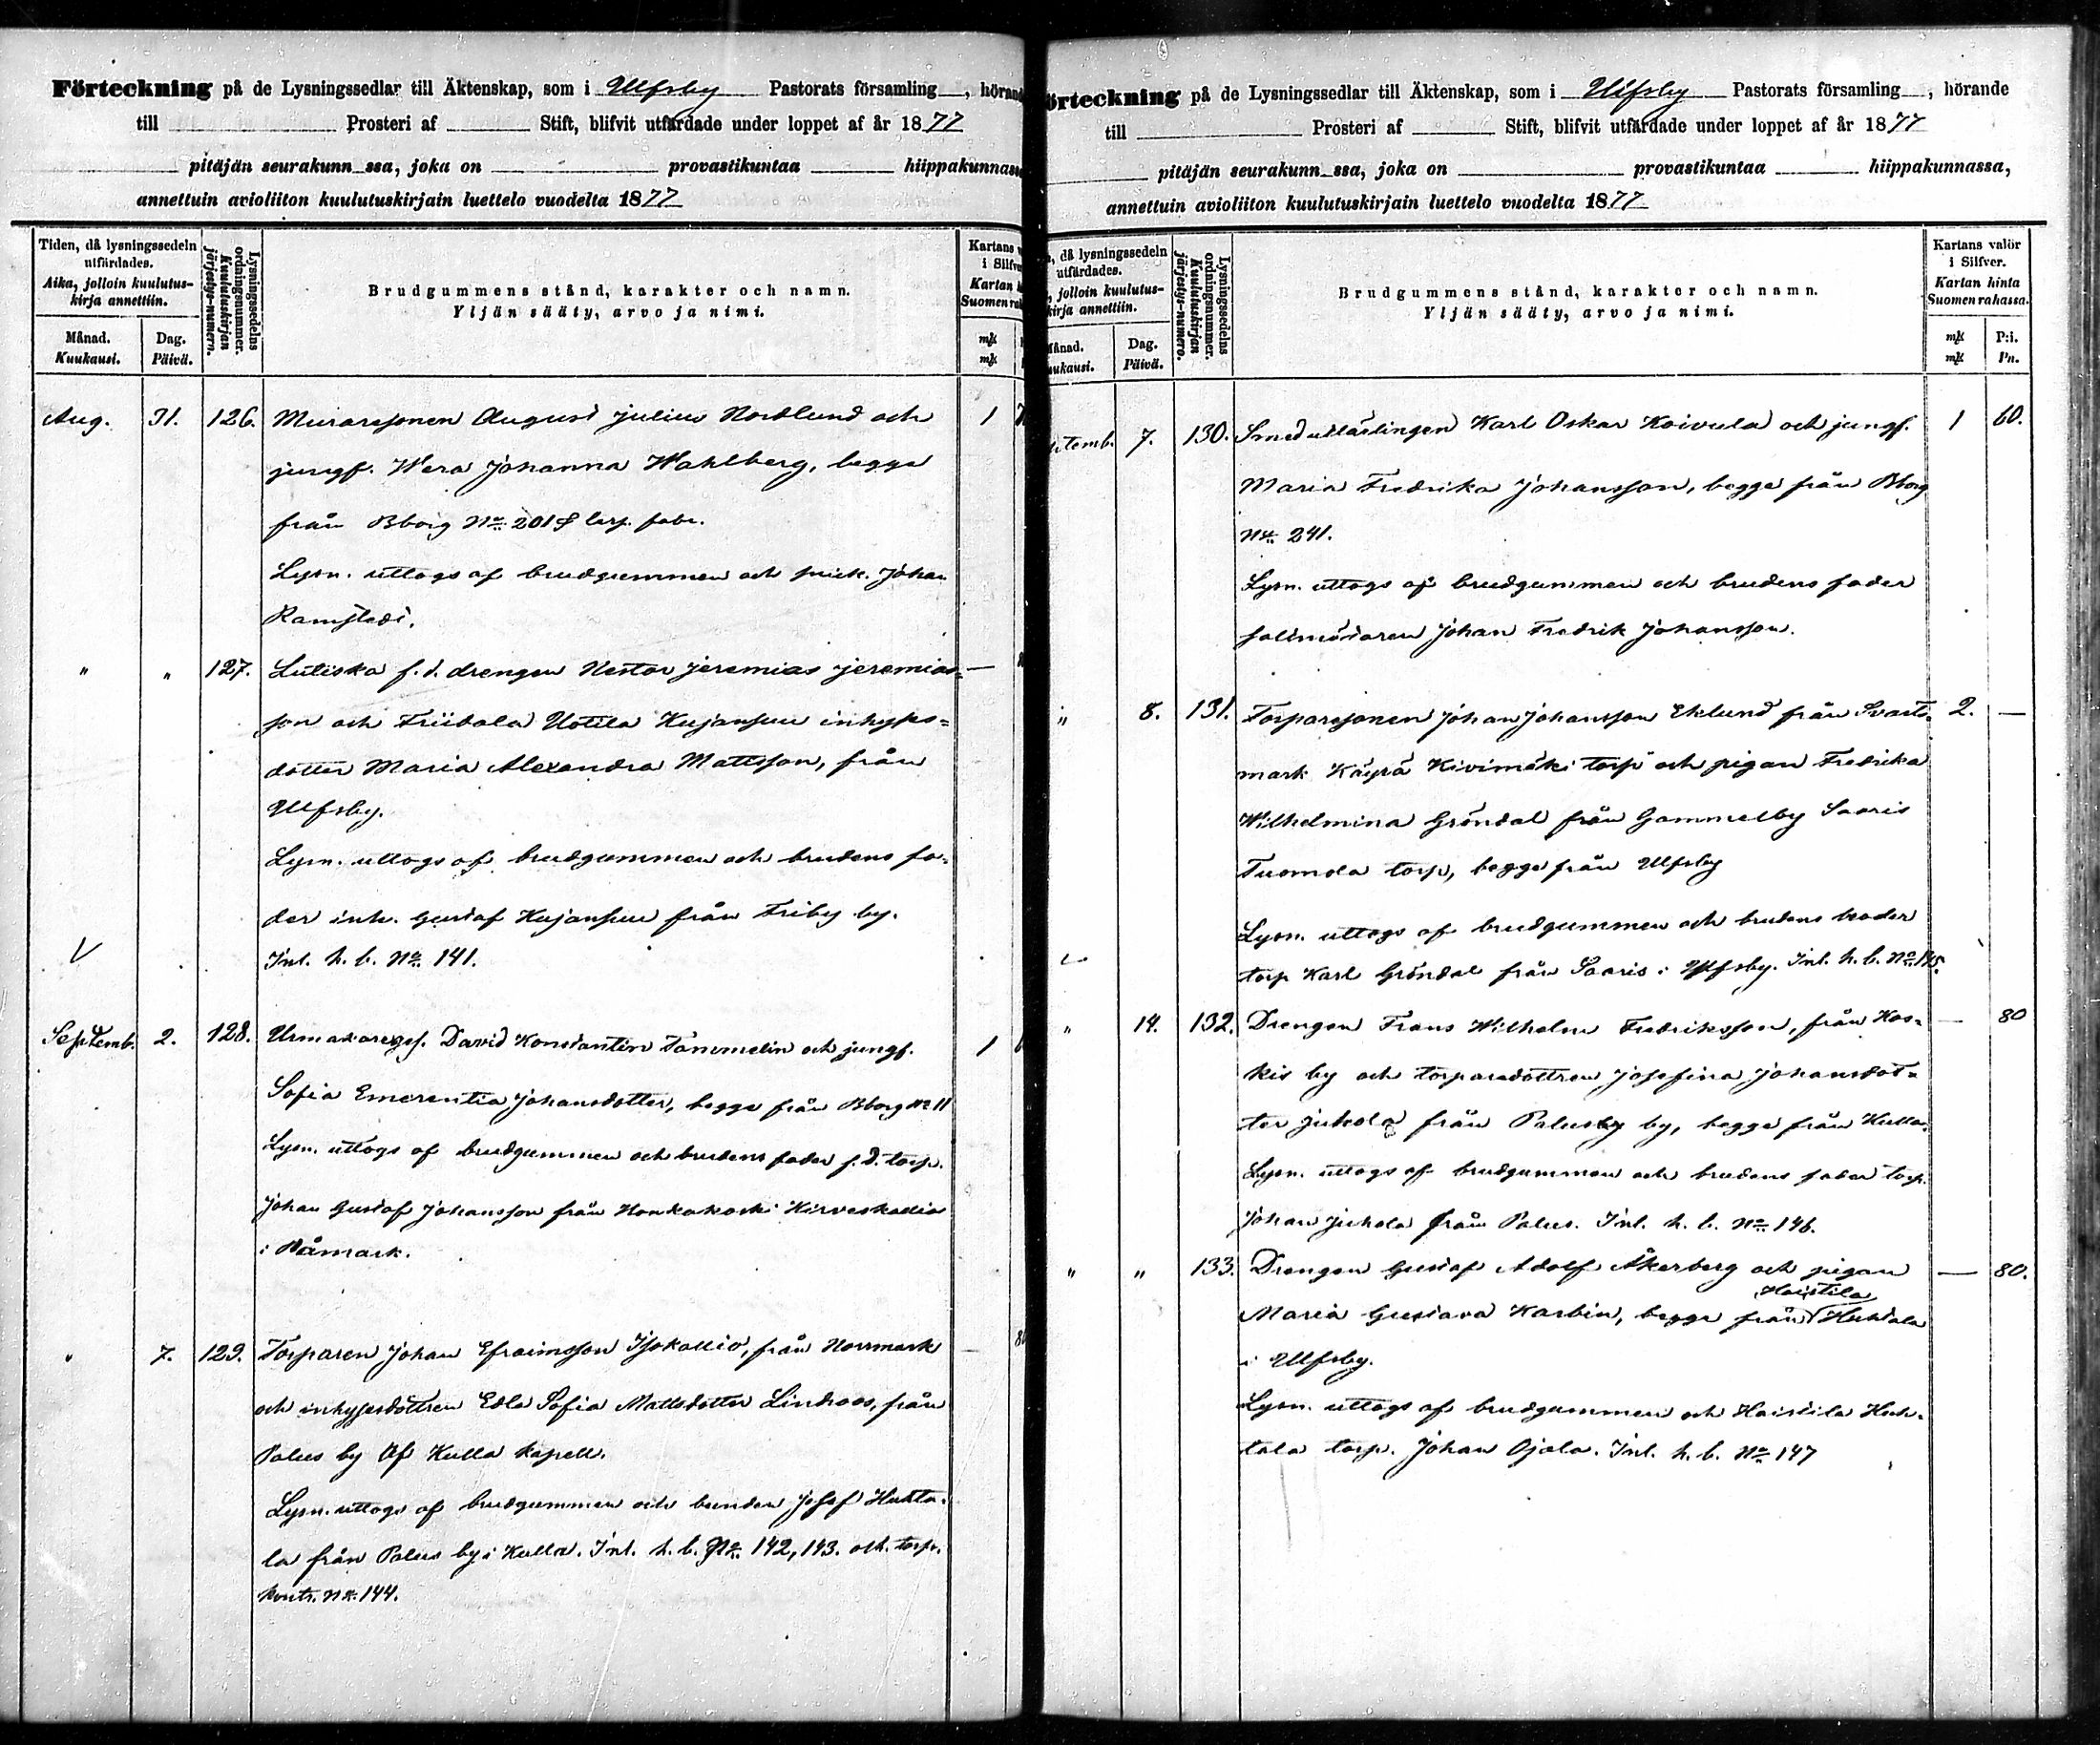 Förteckning på de Lysningssedlar till Äktenskap, som i Ulfsby Pastorats församling, hörande
till Prosteri af Stift, blifvit utfärdade under loppet af år 1877
pitäjän seurakunn ssa, joka on provastikuntaa hiippakunnassa
annettuin avioliiton kuulutuskirjain luettelo vuodelta 1877
Tiden, då lysningssedeln utfärdades.
Aika, jolloin kuulutuskirja annettiin.
Månad. Kuukausi.
Dag. Päivä.
Lysningssedelns ordningsnummer.
Kuulutuskirjan järjestys-numero.
Brudgummens stånd, karakter och namn.
Yljän sääty, arvo ja nimi.
Kartans
i Silfver
Kartan
Suomen
mk
mk
Aug. 31. 126. Muraresonen August Julius Nordlund och 1
jungf. Wera Johanna Wahlberg, begge
från Bborg No 201
Lysn. uttogs af brudgummen och snick. Johan
Ramstedt.
" " 127. Lutiska f.d. drengen Nestor Jeremias Jeremias= —
son och Friibala Uotila Kujansuu inhyses=
dotter Maria Alexandra Mattsson, från
Ulfsby.
Lysn. uttogs af brudgummen och brudens fa=
der inh. Gustaf Kujansuu från Friby by.
Inl. h. b. No 141.
Septemb. 2. 128. Urmakaregs. David Konstantin Tammelin och jungf. 1
Sofia Emerentia Johansdotter, begge från Bborg No 11
Lysn. uttogs af brudgummen och brudens fader f.d. torp.
Johan Gustaf Johansson från Honkakoski Kirveskallio
i Påmark.
" 7. 129. Torparen Johan Efraimsson Isokallio, från Norrmark —
och inhysesdottren Edla Sofia Mattsdotter Lindroos, från
Palus by af Kulla kapell.
Lysn. uttogs af brudgummen och bonden Josef Huhta=
la från Palus by i Kulla. Inl. h. b. No 142, 143. och torp.
kontr. No 144.
Förteckning på de Lysningssedlar till Äktenskap, som i Ulfsby Pastorats församling, hörande
till Prosteri af Stift, blifvit utfärdade under loppet af år 1877
pitäjän seurakunn ssa, joka on provastikuntaa hiippakunnassa,
annettuin avioliiton kuulutuskirjain luettelo vuodelta 1877
då lysningssedeln utfärdades.
jolloin kuulutuskirja annettiin.
Månad. Kuukausi.
Dag. Päivä.
Lysningssedelns ordningsnummer.
Kuulutuskirjan järjestys-numero.
Brudgummens stånd, karakter och namn.
Yljän sääty, arvo ja nimi.
Kartans valör
i Silfver.
Kartan hinta
Suomen rahassa.
mk P:i.
mk Pn.
temb. 7. 130. Smedutlärlingen Karl Oskar Koivula och jungf. 1 60.
Maria Fredrika Johansson, begge från Bborg
No 241.
Lysn. uttogs af brudgummen och brudens fader
saltmätaren Johan Fredrik Johansson.
" 8. 131. Torparesonen Johan Johansson Eklund från Svarts= 2. —
mark Käyrä Kivimäki torp och pigan Fredrika
Wilhelmina Gröndal från Gammelby Saaris
Tuomola torp, begge från Ulfsby
Lysn. uttogs af brudgummen och brudens broder
torp Karl Gröndal från Saaris i Ulfsby. Inl. h. b. No 145.
" 14. 132. Drengen Frans Wilhelm Fredriksson, från Kos= — 80
kis by och torparedottren Josefina Johansdot=
ter Jukola från Palusby by, begge från Kulla.
Lysn. uttogs af brudgummen och brudens fader torp.
Johan Jukola från Palus. Inl. h. b. No 146.
" " 133. Drengen Gustaf Adolf Åkerberg och pigan — 80.
Haistila
Maria Gustava Karbin, begge från Huhtala
i Ulfsby.
Lysn. uttogs af brudgummen och Haistila Huh=
tala torp. Johan Ojala. Inl. h. b. No 147